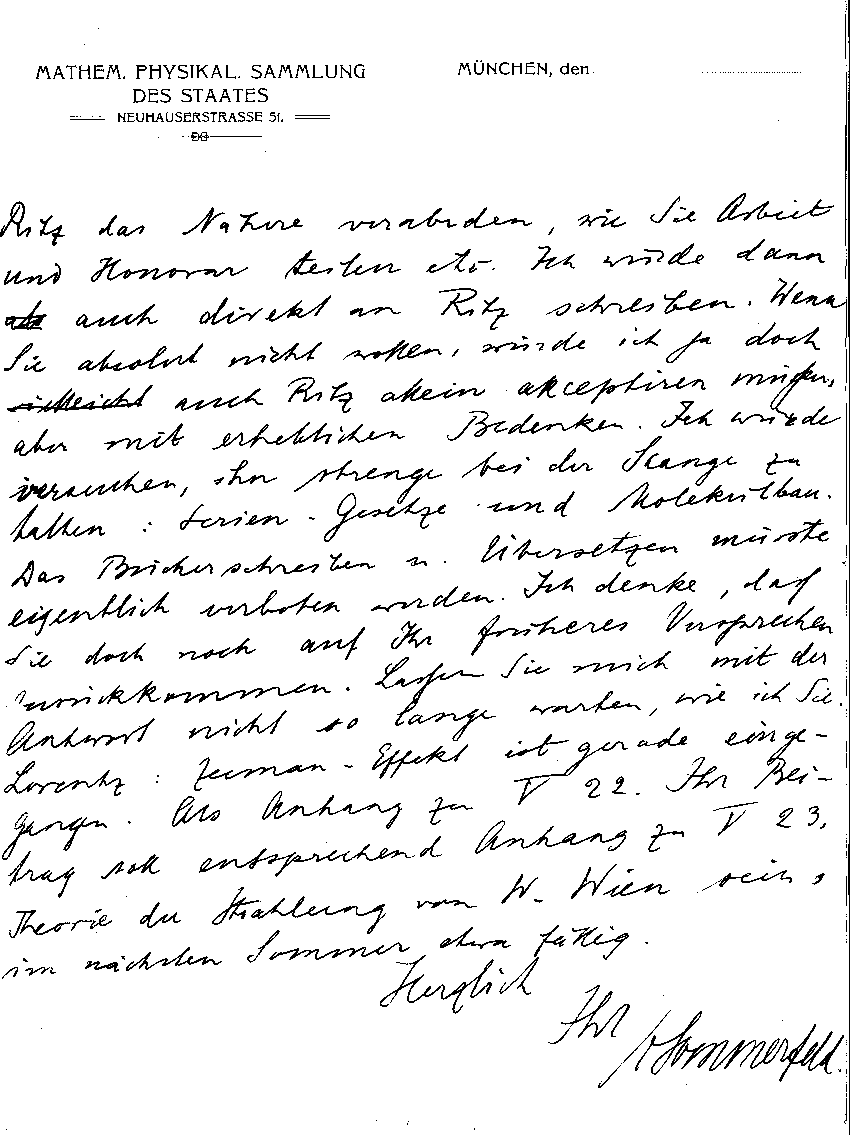 MATHEM. PHYSIKAL. SAMMLUNG
DES STAATES
NEUHAUSERSTRASSE 51.
MÜNCHEN, den
Ritz das Nähere verabreden, wie Sie Arbeit
und Honorar teilen etc. Ich würde dann
auch direkt an Ritz schreiben. Wenn
Sie absolut nicht wollen, würde ich ja doch
vielleicht auch Ritz allein akzeptiren müssen,
aber mit erheblichen Bedenken. Ich würde
versuchen, ihn strenge bei der Stange zu
halten: Serien-Gesetze und Molekülbau.
Das Bücherschreiben u. Übersetzen müsste
eigentlich verboten werden. Ich denke, daß
Sie doch noch auf Ihr früheres Versprechen
zurückkommen. Lassen Sie mich mit der
Antwort nicht so lange warten, wie ich Sie.
Lorentz: Zeeman-Effekt ist gerade einge-
gangen. Als Anhang zu V 22. Ihr Bei-
trag soll entsprechend Anhang zu V 23,
Theorie der Strahlung von W. Wien sein,
im nächsten Sommer etwa fällig.
Herzlich
Ihr
A Sommerfeld.